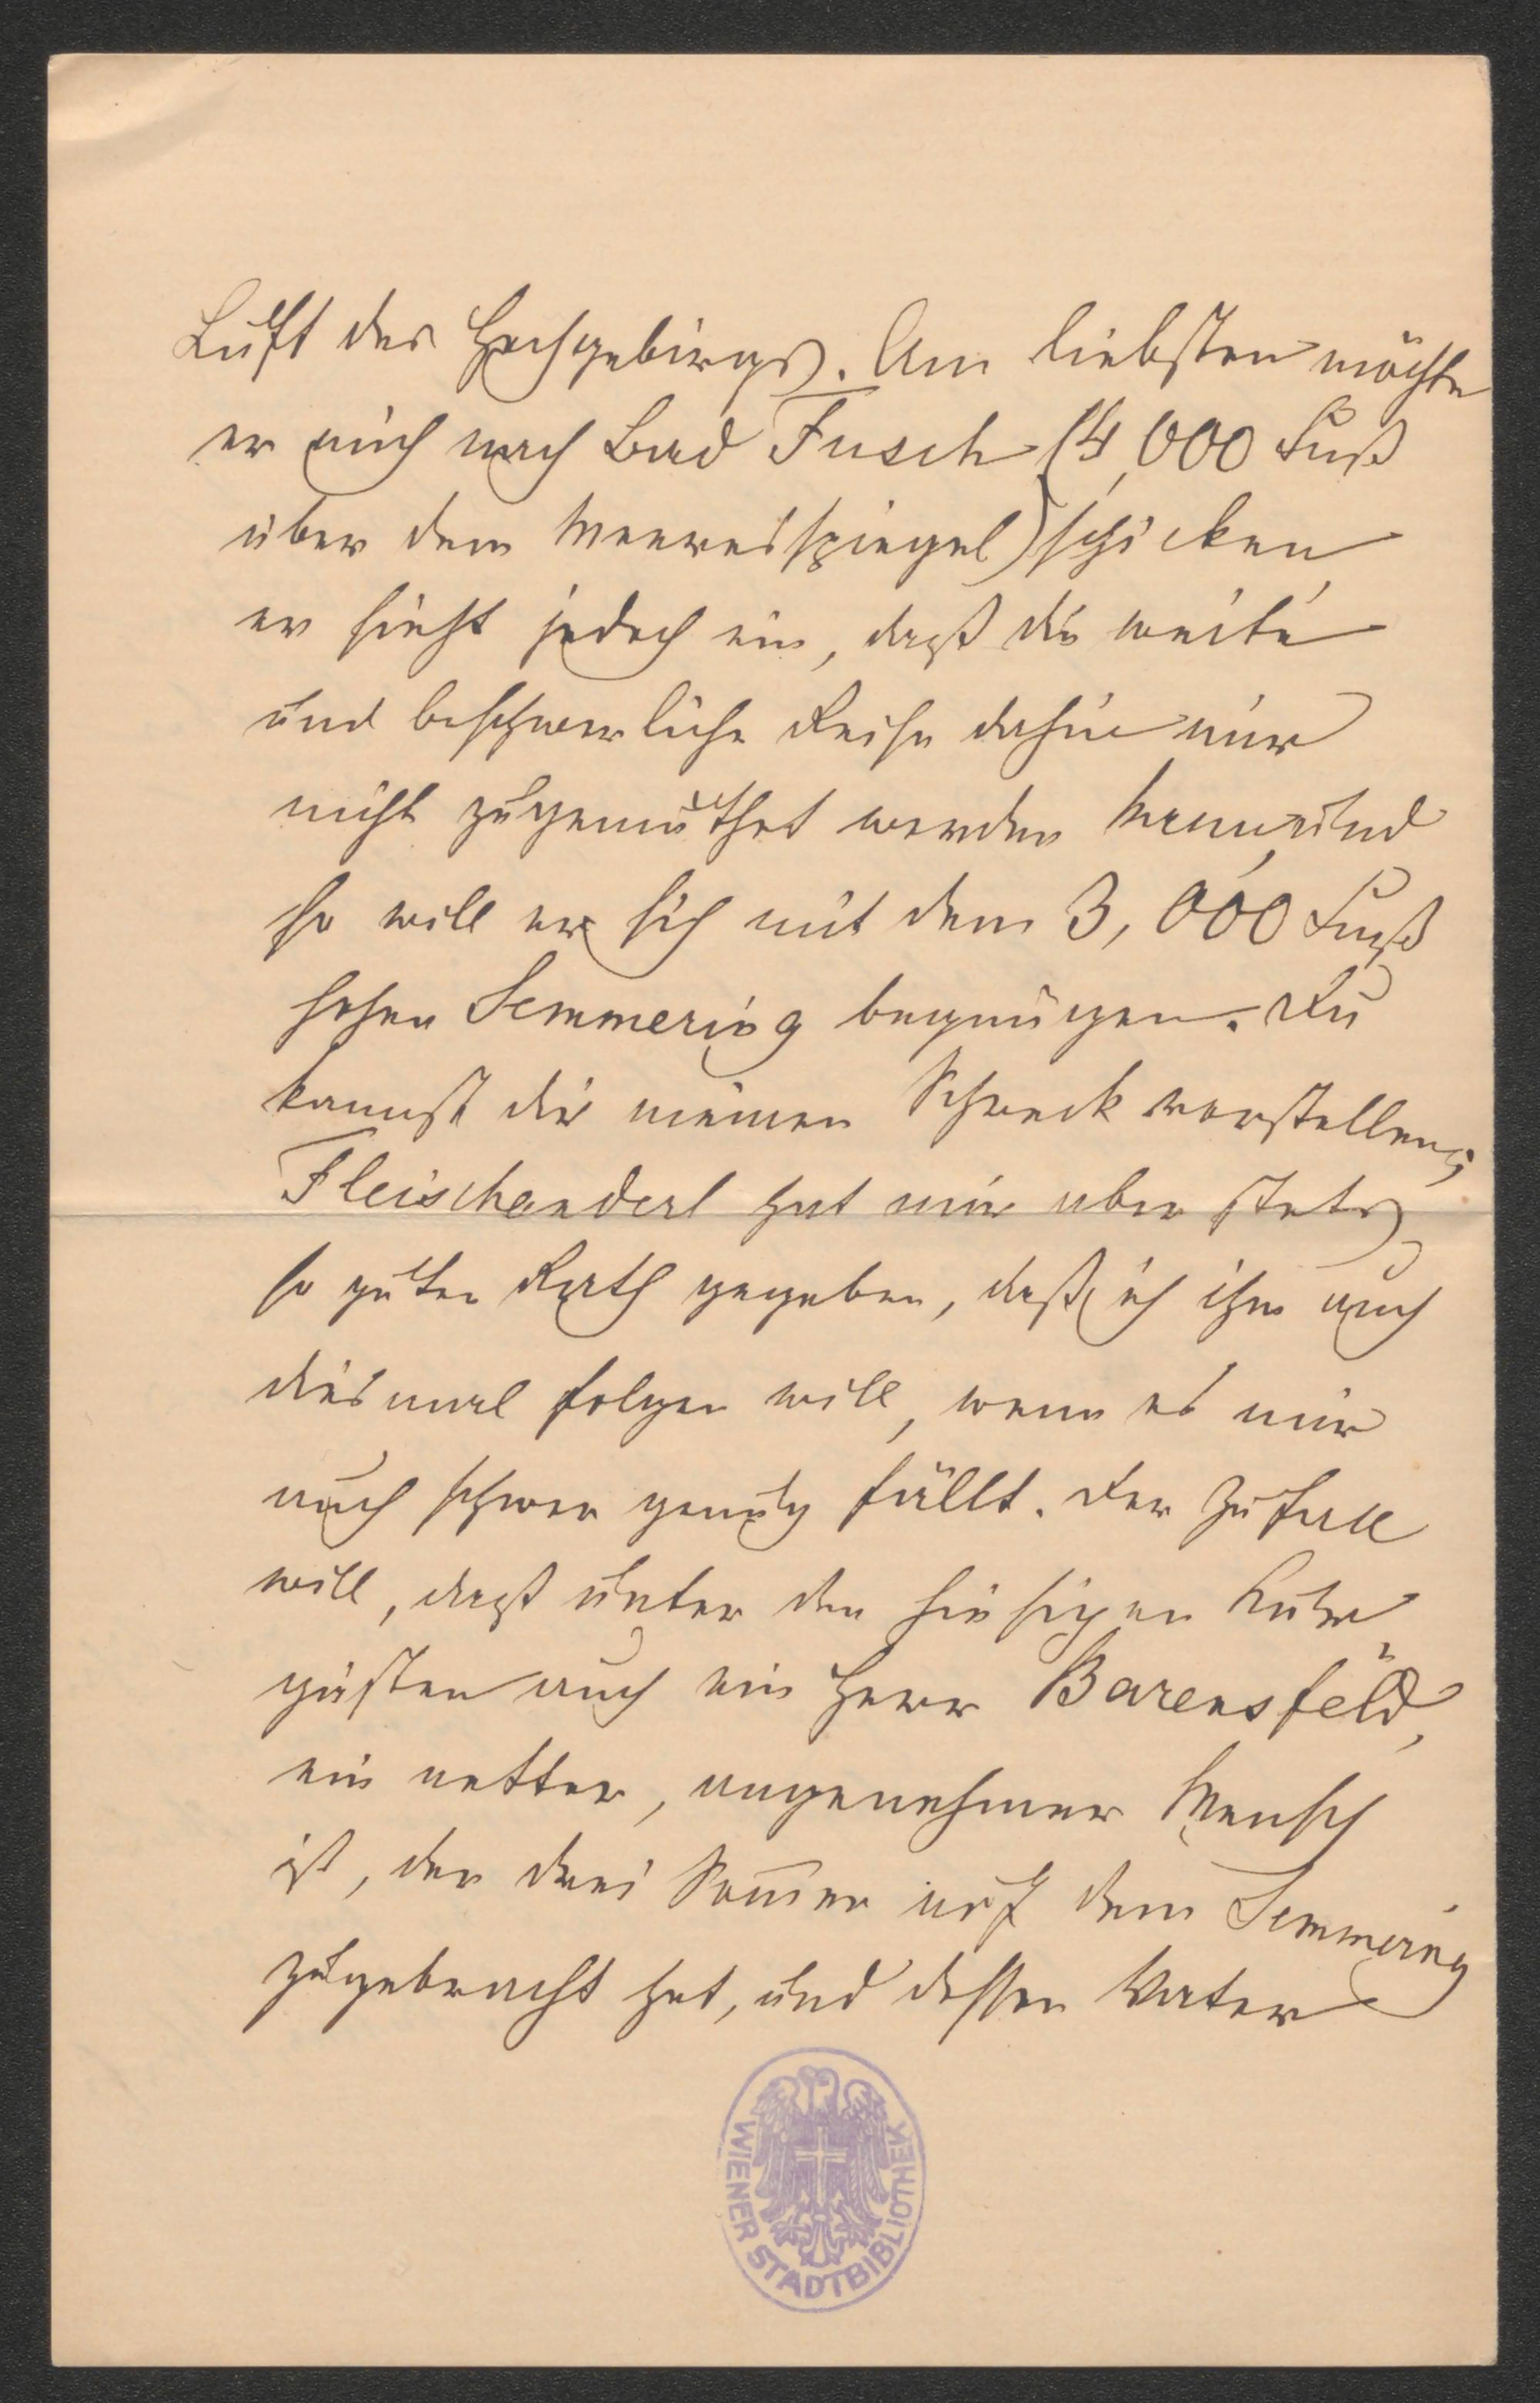 Luft des Hochgebirgs. Am liebsten möchte
er mich nach Bad Fusch (4,000 Fuß
über dem Meeresspiegel) schicken
er sieht jedoch ein, daß die weite
und beschwerliche Reise dahin mir
nicht zugemuthet werden kann, und
so will er sich mit dem 3,000 Fuß
hohen Semmering begnügen. Du
kannst dir meinen Schreck vorstellen;
Fleischanderl hat mir aber stets
so guten Rath gegeben, daß ich ihm auch
diesmal folgen will, wenn es mir
auch schwer genug fällt. Der Zufall
will, daß unter den hiesigen Kur
gästen auch ein Herr Barensfeld,
ein netter, angenehmer Mensch
ist, der drei Som̅er auf dem Semmering
zugebracht hat, und dessen Vater
WIENER STADTBIBLIOTHEK